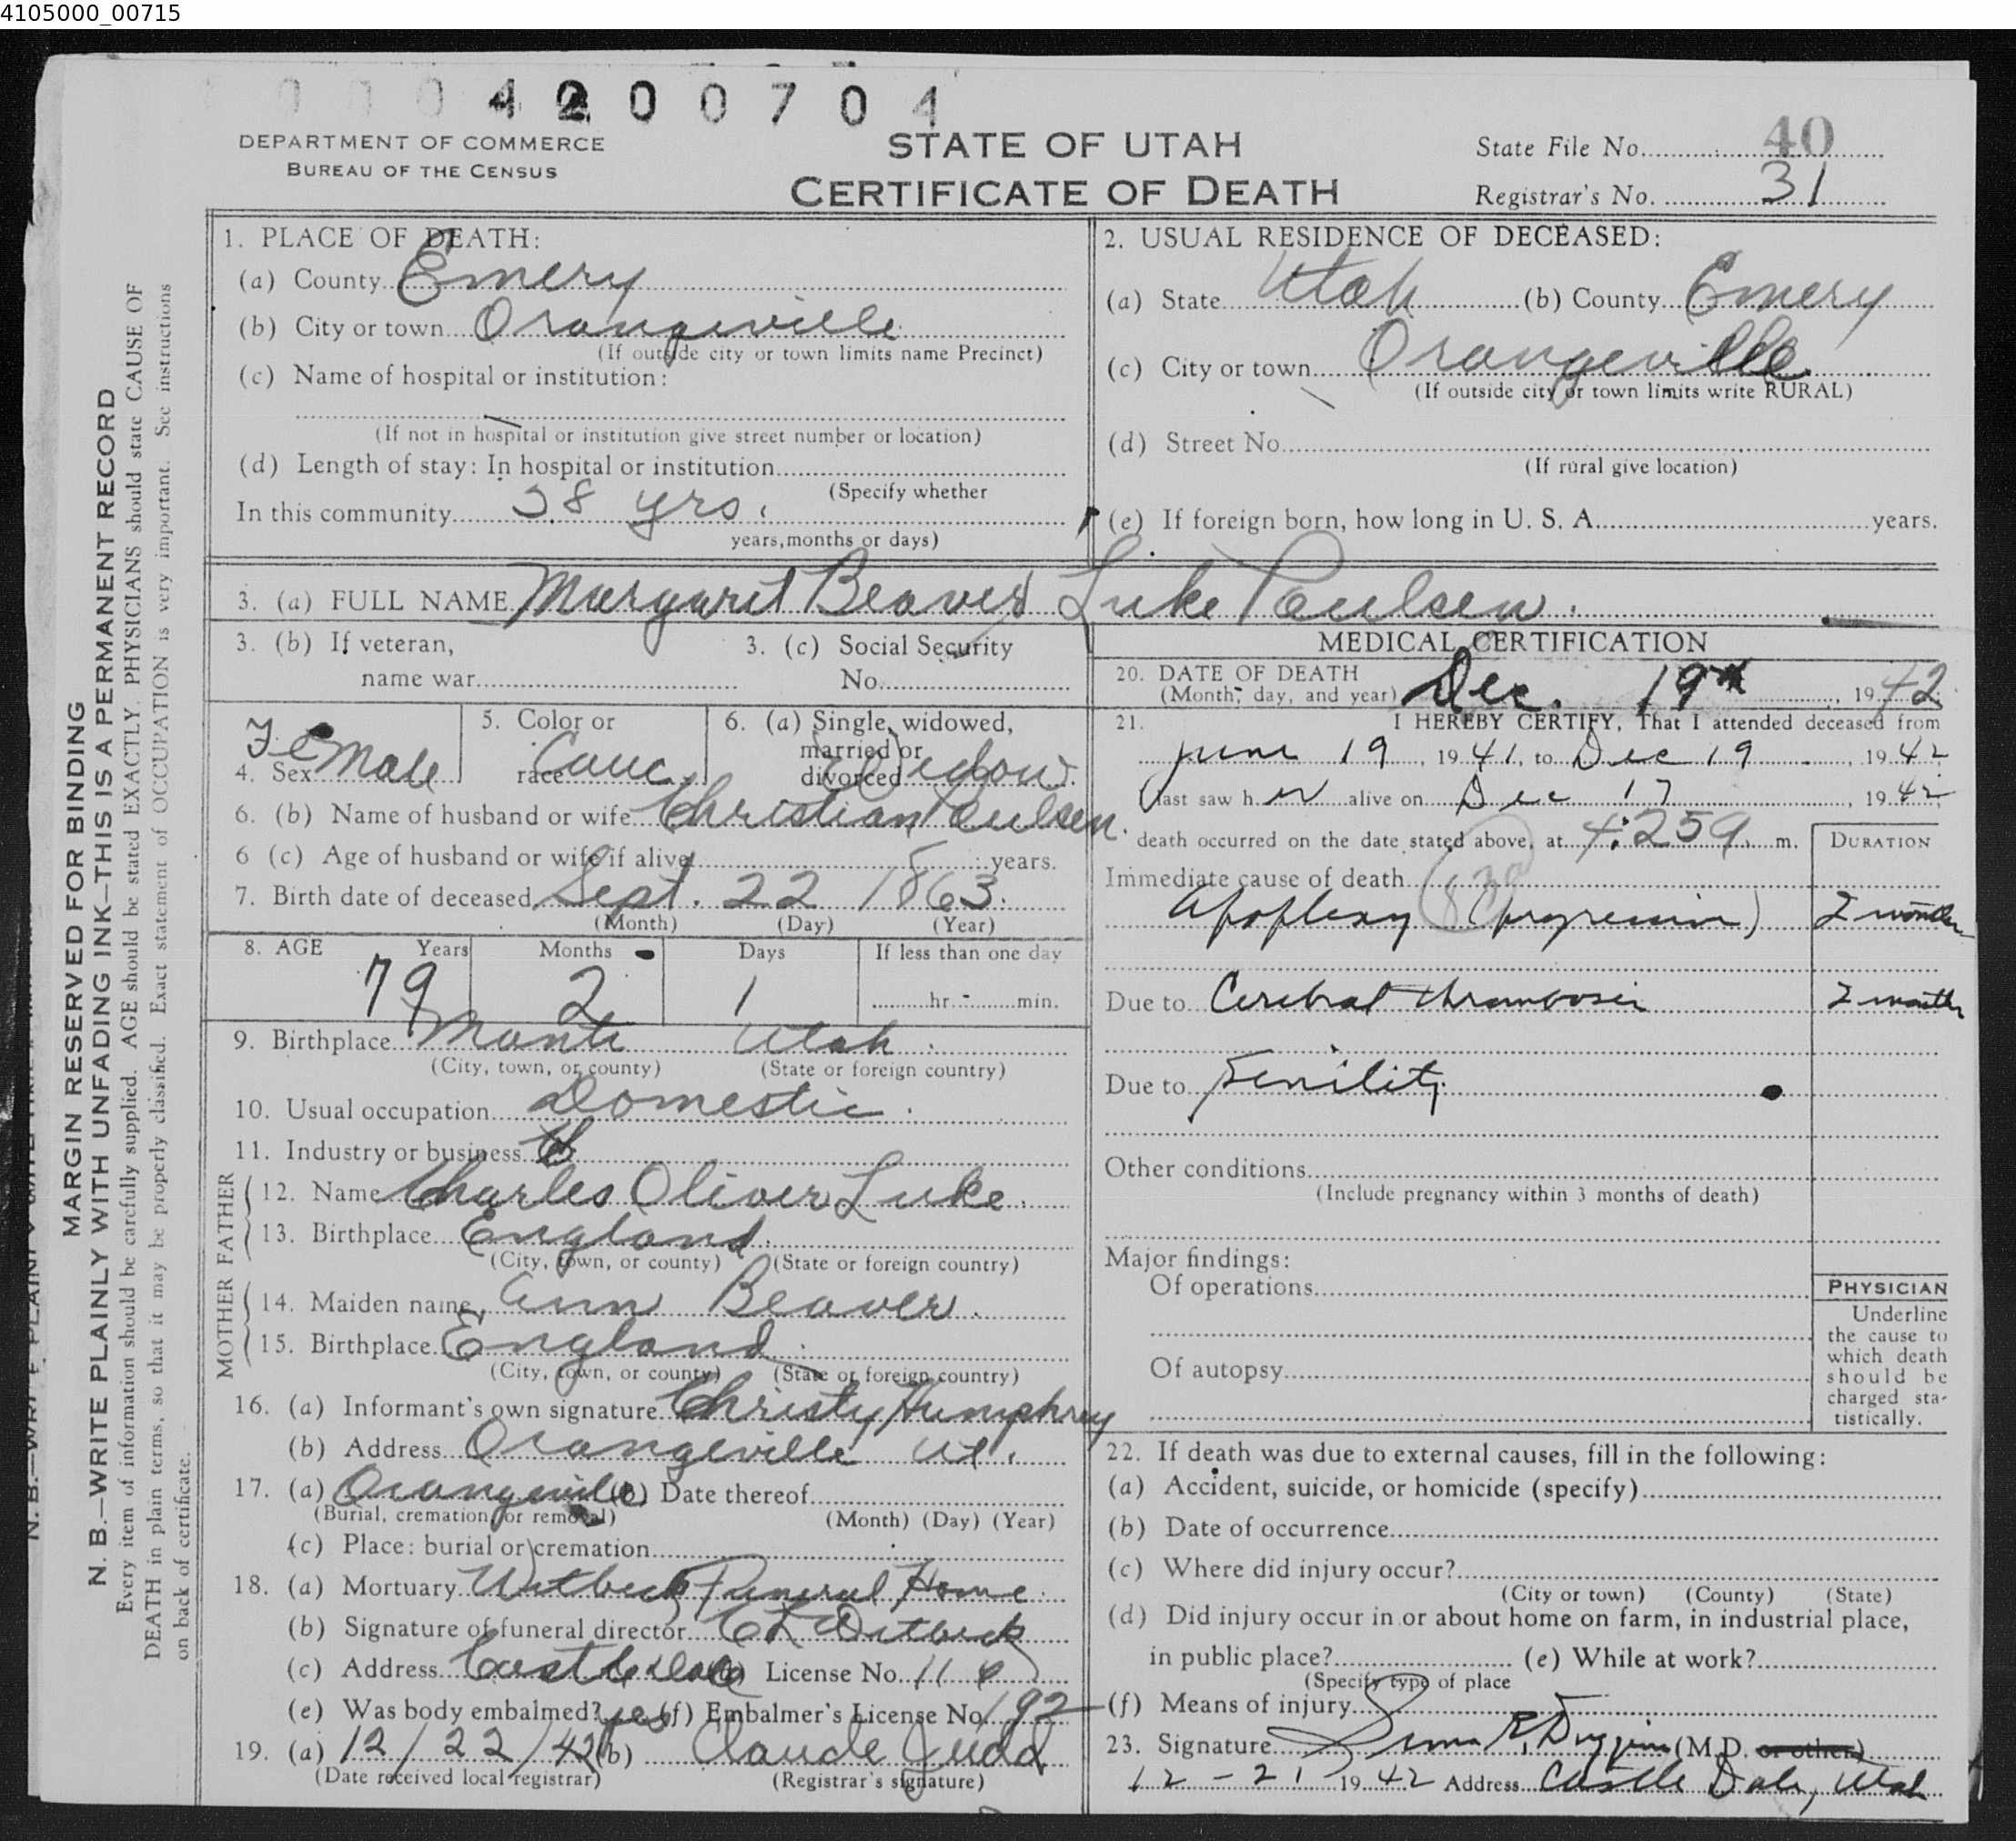 4105000_00715
0004200704
DEPARTMENT OF COMMERCE
BUREAU OF THE CENSUS
STATE OF UTAH
CERTIFICATE OF DEATH
State File No. 40
Registrar's No. 31
MARGIN RESERVED FOR BINDING
N. B.—WRITE PLAINLY WITH UNFADING INK—THIS IS A PERMANENT RECORD
Every item of information should be carefully supplied. AGE should be stated EXACTLY. PHYSICIANS should state CAUSE OF
DEATH in plain terms, so that it may be properly classified. Exact statement of OCCUPATION is very important. See instructions
on back of certificate.
1. PLACE OF DEATH:
(a) County Emery
(b) City or town Orangeville
(If outside city or town limits name Precinct)
(c) Name of hospital or institution:
(If not in hospital or institution give street number or location)
(d) Length of stay: In hospital or institution
(Specify whether
In this community 38 yrs.
years, months or days)
2. USUAL RESIDENCE OF DECEASED:
(a) State Utah (b) County Emery
(c) City or town Orangeville
(If outside city or town limits write RURAL)
(d) Street No.
(If rural give location)
(e) If foreign born, how long in U. S. A. years.
3. (a) FULL NAME Margaret Beaver Luke Paulsen.
3. (b) If veteran,
name war
3. (c) Social Security
No.
4. Sex Female
5. Color or
race Cauc.
6. (a) Single, widowed,
married or
divorced Widow.
6. (b) Name of husband or wife Christian Paulsen.
6 (c) Age of husband or wife if alive years.
7. Birth date of deceased Sept. 22 1863.
(Month) (Day) (Year)
8. AGE Years Months Days If less than one day
79 2 1 hr. min.
9. Birthplace Manti Utah.
(City, town, or county) (State or foreign country)
10. Usual occupation Domestic.
11. Industry or business
FATHER
12. Name Charles Oliver Luke.
13. Birthplace England.
(City, town, or county) (State or foreign country)
MOTHER
14. Maiden name Ann Beaver.
15. Birthplace England.
(City, town, or county) (State or foreign country)
16. (a) Informant's own signature Christy Humphrey
(b) Address Orangeville Ut.
17. (a) Orangeville (b) Date thereof
(Burial, cremation, or removal) (Month) (Day) (Year)
(c) Place: burial or cremation
18. (a) Mortuary Witbeck Funeral Home.
(b) Signature of funeral director CL Witbeck
(c) Address Castle Dale License No. 11
(e) Was body embalmed? yes (f) Embalmer's License No. 192
19. (a) 12/22/42 (b) Claude Judd
(Date received local registrar) (Registrar's signature)
MEDICAL CERTIFICATION
20. DATE OF DEATH
(Month, day, and year) Dec. 19th, 1942
21. I HEREBY CERTIFY, That I attended deceased from
June 19, 1941, to Dec 19, 1942
I last saw her alive on Dec 17, 1942
death occurred on the date stated above, at 4:25 a. m.
DURATION
Immediate cause of death
Apoplexy (progressive) 2 months
Due to Cerebral thrombosis 2 months
Due to Senility
Other conditions
(Include pregnancy within 3 months of death)
Major findings:
Of operations
Of autopsy
PHYSICIAN
Underline
the cause to
which death
should be
charged sta-
tistically.
22. If death was due to external causes, fill in the following:
(a) Accident, suicide, or homicide (specify)
(b) Date of occurrence
(c) Where did injury occur?
(City or town) (County) (State)
(d) Did injury occur in or about home on farm, in industrial place,
in public place? (e) While at work?
(Specify type of place
(f) Means of injury
23. Signature R. Duggins (M.D. or other)
12-21 1942 Address Castle Dale, Utah